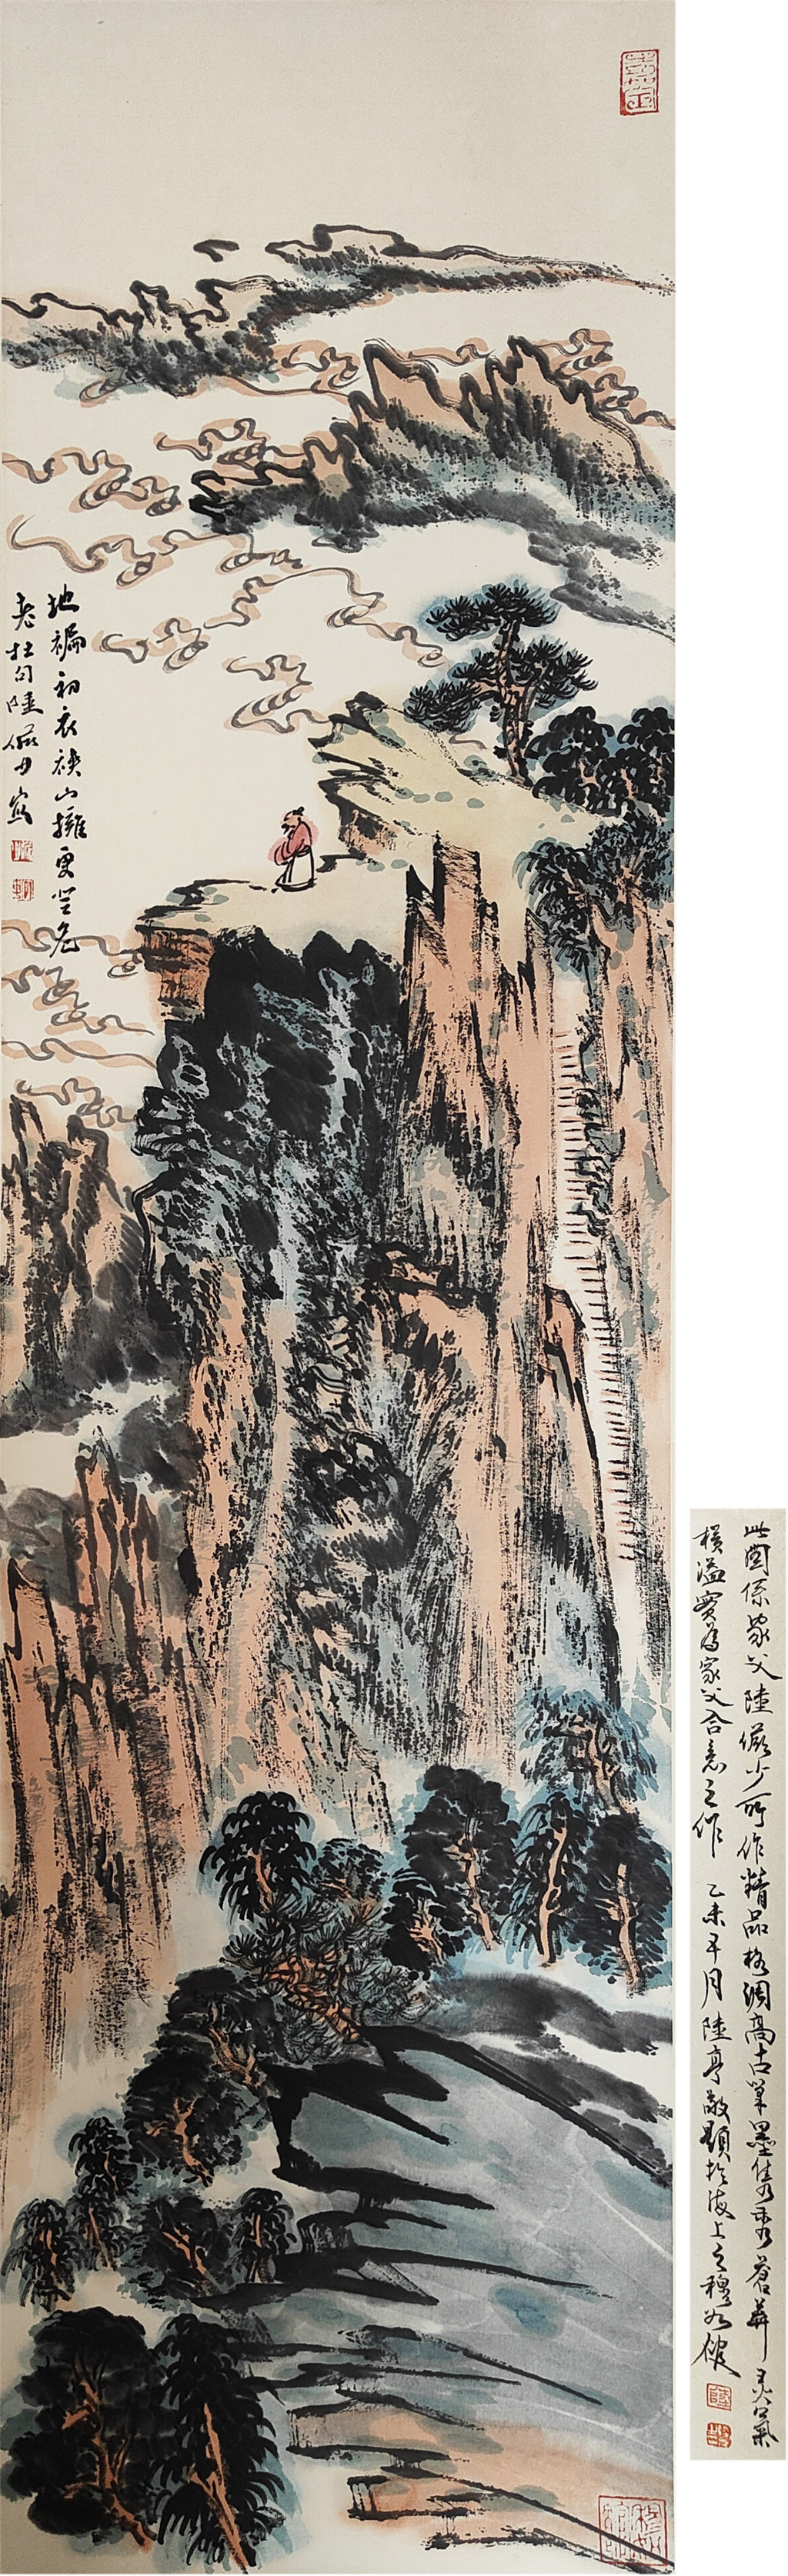 地褊初衣裌山擁更登危
老杜句陸儼少寫
此圖係家父陸儼少所作精品格調高古筆墨雋秀蒼莽灵氣
橫溢實為家父合意之作 乙未午月陸亨敬題於海上之穆如館